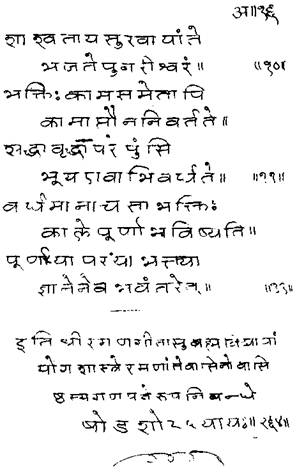 अ॥१६
शाश्वताय सुखायांते
भजते पुनरीश्वरं॥ ॥१०॥
भक्तिः कामसमेतापि
कामाप्तौ न निवर्तते॥
श्रद्धा वृद्धा परे पुंसि
भूय एवाभिवर्धते॥ ॥११॥
वर्धमाना च सा भक्तिः
काले पूर्णा भविष्यति॥
पूर्णया परया भक्त्या
ज्ञानेनेव भवं तरेत्॥ ॥१२॥
इति श्री रमणगीतासु ब्रह्मविद्यायां
योगशास्त्रे रमणांतेवासिनो वासि
ष्ठस्य गणपतेरुपनिबन्धे
षोडशोऽध्यायः॥